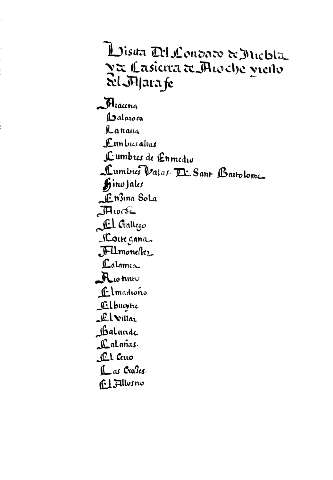 Visita Del Condado de Niebla
y de la sierra de Aroche y cello
del Ajarafe
Aracena
Galaroca
La naua
Cumbres altas
Cumbres de Enmedio
Cumbres Vaxas. De Sant Bartolome
Hinojales
Enzina Sola
Aroche
El Gallego
Cortegana
Almonester
Calamea
Riotinto
El madroño
El buytre
El Villar
Calañas
El Cerro
Las Cruzes
El Allosno